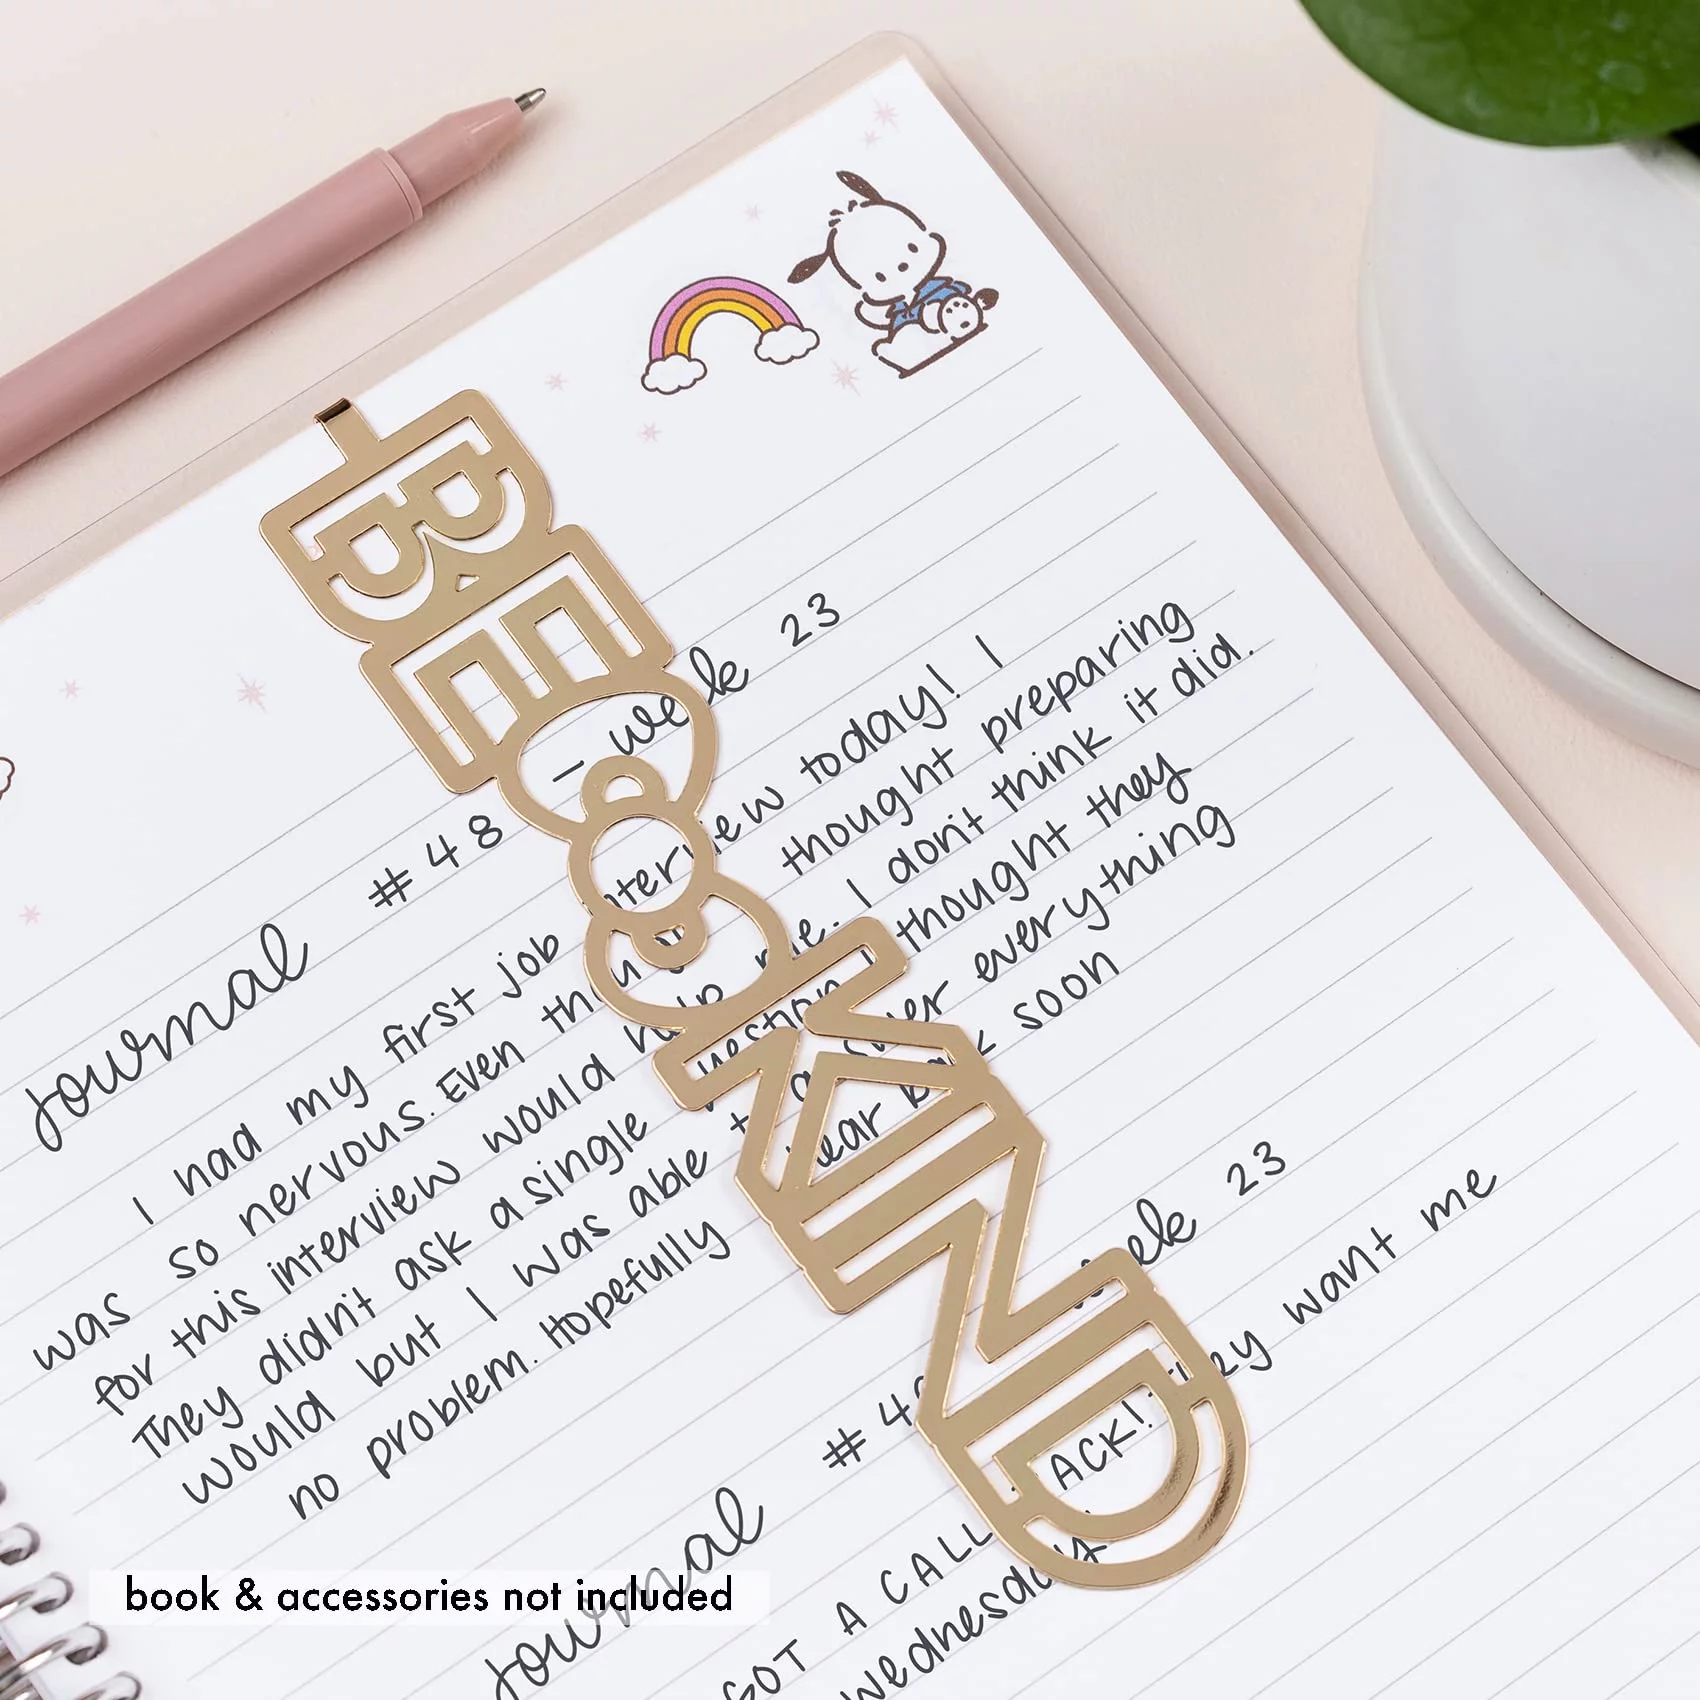 BE KIND
Journal #48 – week 23
I had my first job interview today! I
was so nervous. Even thought preparing
for this interview would help me. I don't think it did.
They didn't ask a single question I thought they
would but I was able to answer everything
no problem. Hopefully hear back soon
Journal #4 week 23
GOT A CALL BACK!. They want me
wednesday
book & accessories not included